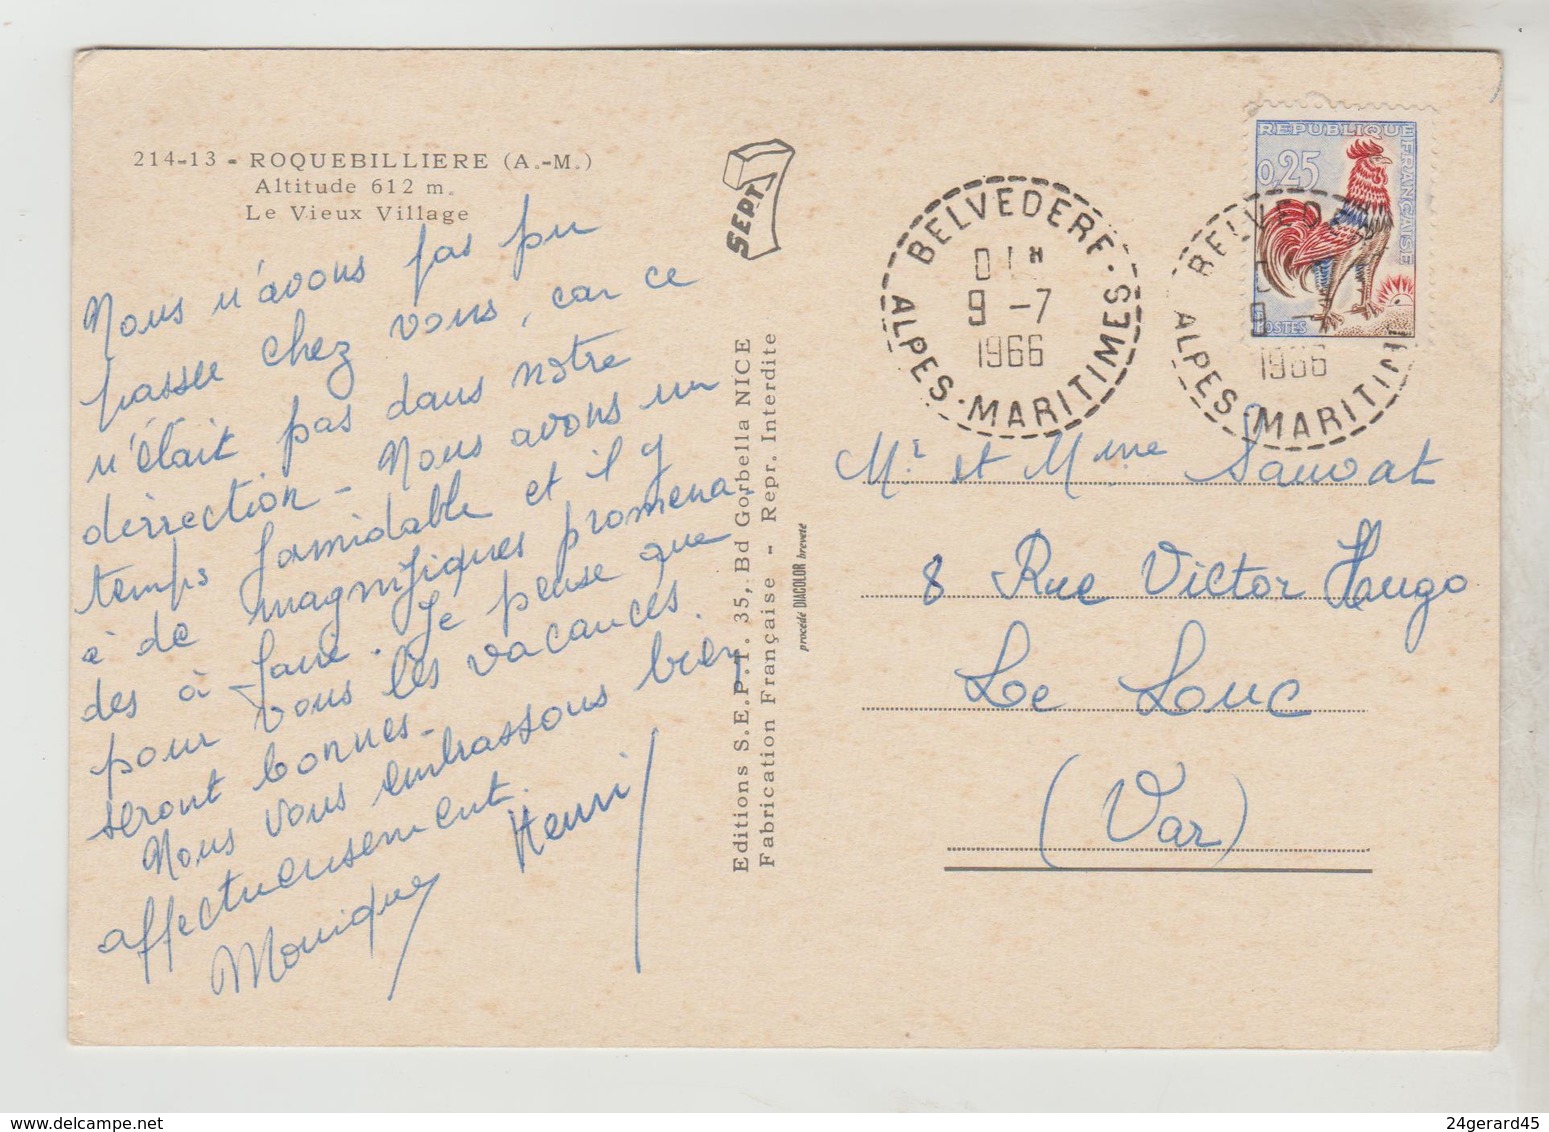 214-13 - ROQUEBILLIERE (A.-M.)
Altitude 612 m.
Le Vieux Village
Nous n'avons pas pu
passer chez vous, car ce
n'était pas dans notre
dirrection - Nous avons un
temps formidable et il y
à de magnifiques promena-
des à faire. Je pense que
pour vous les vacances
seront bonnes-
Nous vous embrassons bien
affectueusement.
Monique Henri
SEPT
Editions S.E.P.T. 35, Bd Gorbella NICE
Fabrication Française - Repr. Interdite
procédé DIACOLOR breveté
BELVEDERE
9 -7
1966
ALPES-MARITIMES
REPUBLIQUE FRANÇAISE
0,25
POSTES
BELVEDE
9 -
1966
ALPES-MARITIM
Mr et Mme Sauvat
8 Rue Victor Hugo
Le Luc
(Var)
24gerard45